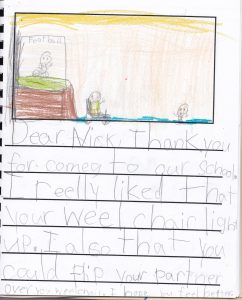 Football
Dear Nick, Thank you
for comeg to our school.
I reelly liked That
your weel chair light
up. I also that you
could flip your partner
over you weelchair. I hope you feel better